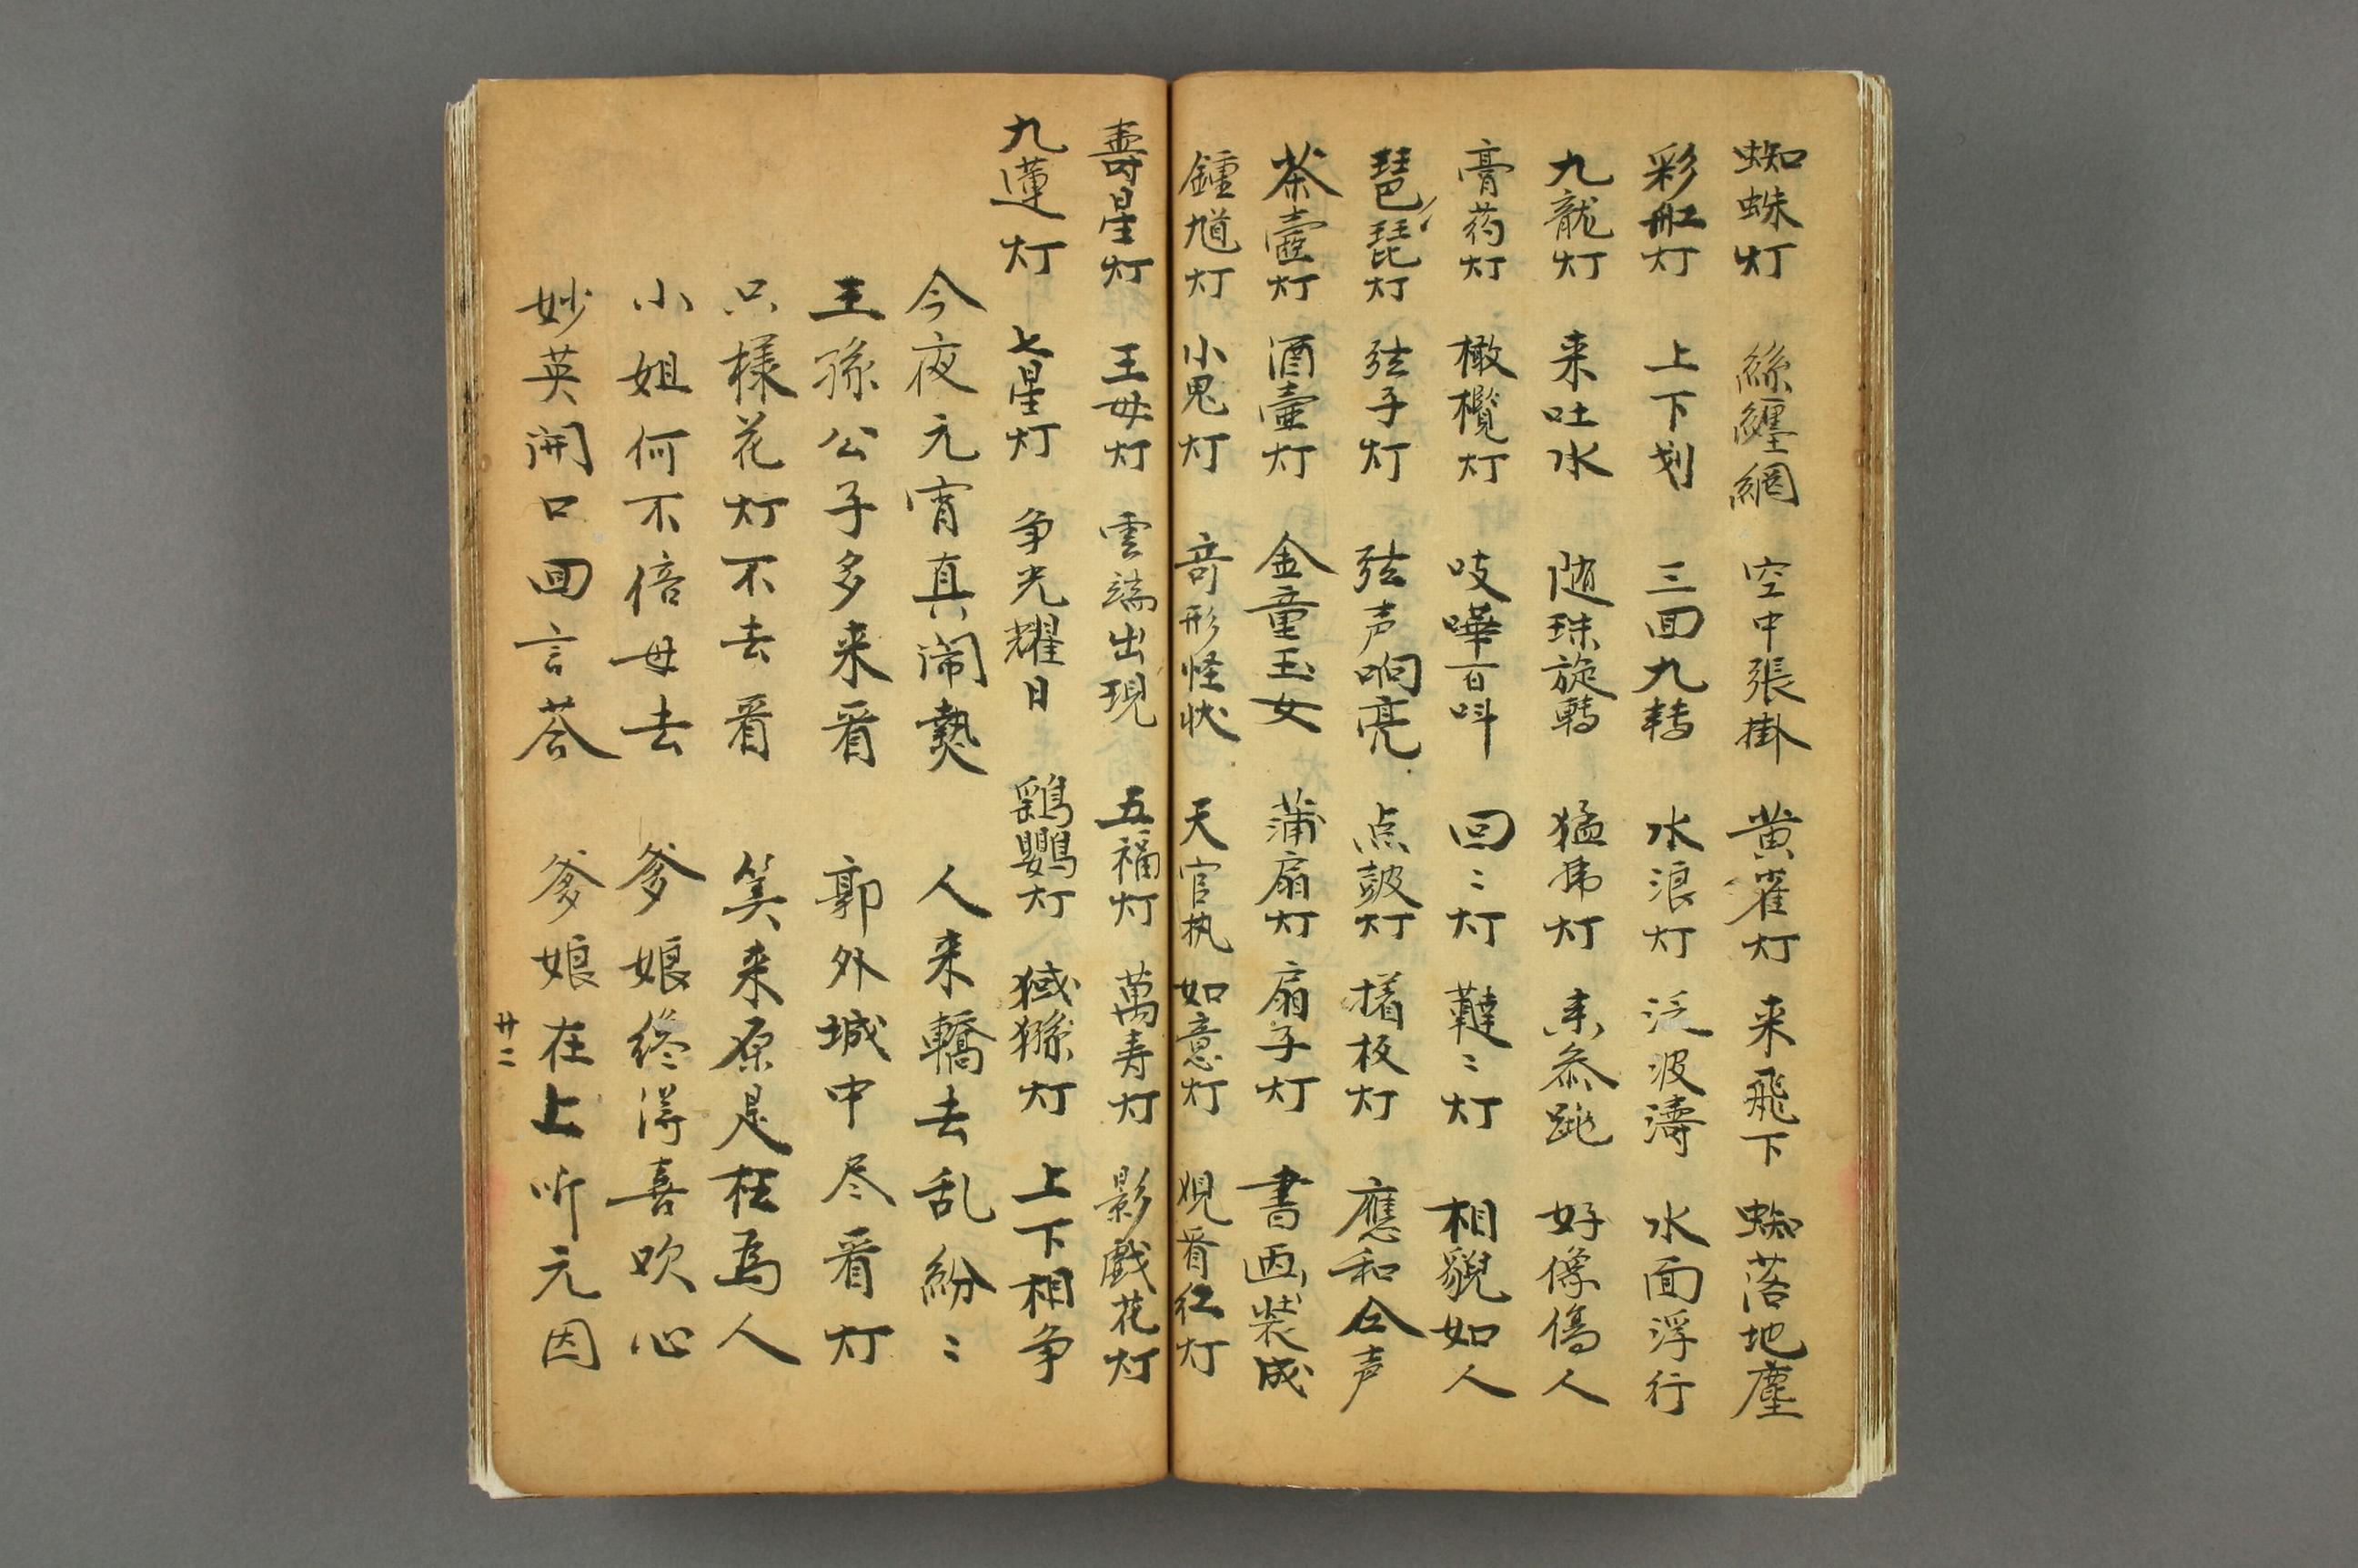 蜘蛛灯 絲纏網 空中張掛 黄雀灯 来飛下 蜘落地塵
彩舡灯 上下划 三回九轉 水浪灯 泛波濤 水面浮行
九龍灯 来吐水 随珠旋轉 猛虎灯 来叅跳 好像傷人
膏药灯 橄欖灯 吱嘩百呌 回〻灯 韃〻灯 相貌如人
琶琵灯 弦子灯 弦声响亮 点皷灯 撍板灯 應和仝声
茶壺灯 酒壺灯 金童玉女 蒲扇灯 扇子灯 書画裝成
鍾馗灯 小鬼灯 竒形怪状 天官执 如意灯 观看红灯
壽星灯 王母灯 雲端出現 五福灯 萬寿灯 影戲花灯
九蓮灯 七星灯 争光耀日 鹦灯 猻灯 上下相争
今夜元宵真闹熱 人来轎去乱紛〻
王孫公子多来看 郭外城中尽看灯
只樣花灯不去看 笑来原是枉為人
小姐何不倍母去 爹娘終得喜吹心
妙英開口回言荅 爹娘在上听元因
廿二